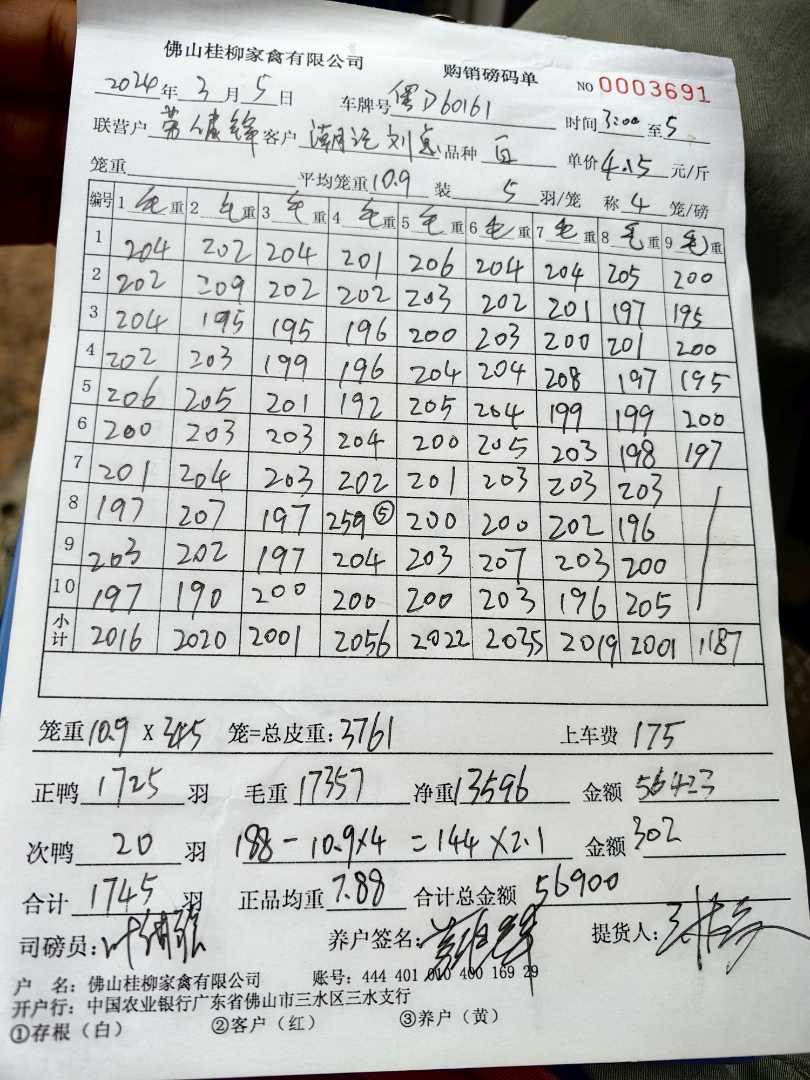 佛山桂柳家禽有限公司 购销磅码单 NO 0003691
2024年3月5日 车牌号 粤D60161 时间3:00至5
联营户 客户 潮汕刘 品种 白 单价4.15元/斤
笼重 平均笼重10.9 装5羽/笼 称4笼/磅
编号 1毛重 2毛重 3毛重 4毛重 5毛重 6毛重 7毛重 8毛重 9毛重
1 204 202 204 201 206 204 204 205 200
2 202 209 202 202 203 202 201 197 195
3 204 195 195 196 200 203 200 201 200
4 202 203 199 196 204 204 208 197 195
5 206 205 201 192 205 204 199 199 200
6 200 203 203 204 200 205 203 198 197
7 201 204 203 202 201 203 203 203
8 197 207 197 259⑤ 200 200 202 196
9 203 202 197 204 203 207 203 200
10 197 190 200 200 200 203 196 205
小计 2016 2020 2001 2056 2022 2035 2019 2001 1187
笼重10.9 X 345 笼=总皮重:3761 上车费 175
正鸭1725羽 毛重17357 净重13596 金额56423
次鸭20羽 188-10.9×4=144×2.1 金额302
合计1745羽 正品均重7.88 合计总金额56900
司磅员: 养户签名: 提货人:
户 名:佛山桂柳家禽有限公司 账号:444 401 010 400 169 29
开户行:中国农业银行广东省佛山市三水区三水支行
①存根(白) ②客户(红) ③养户(黄)